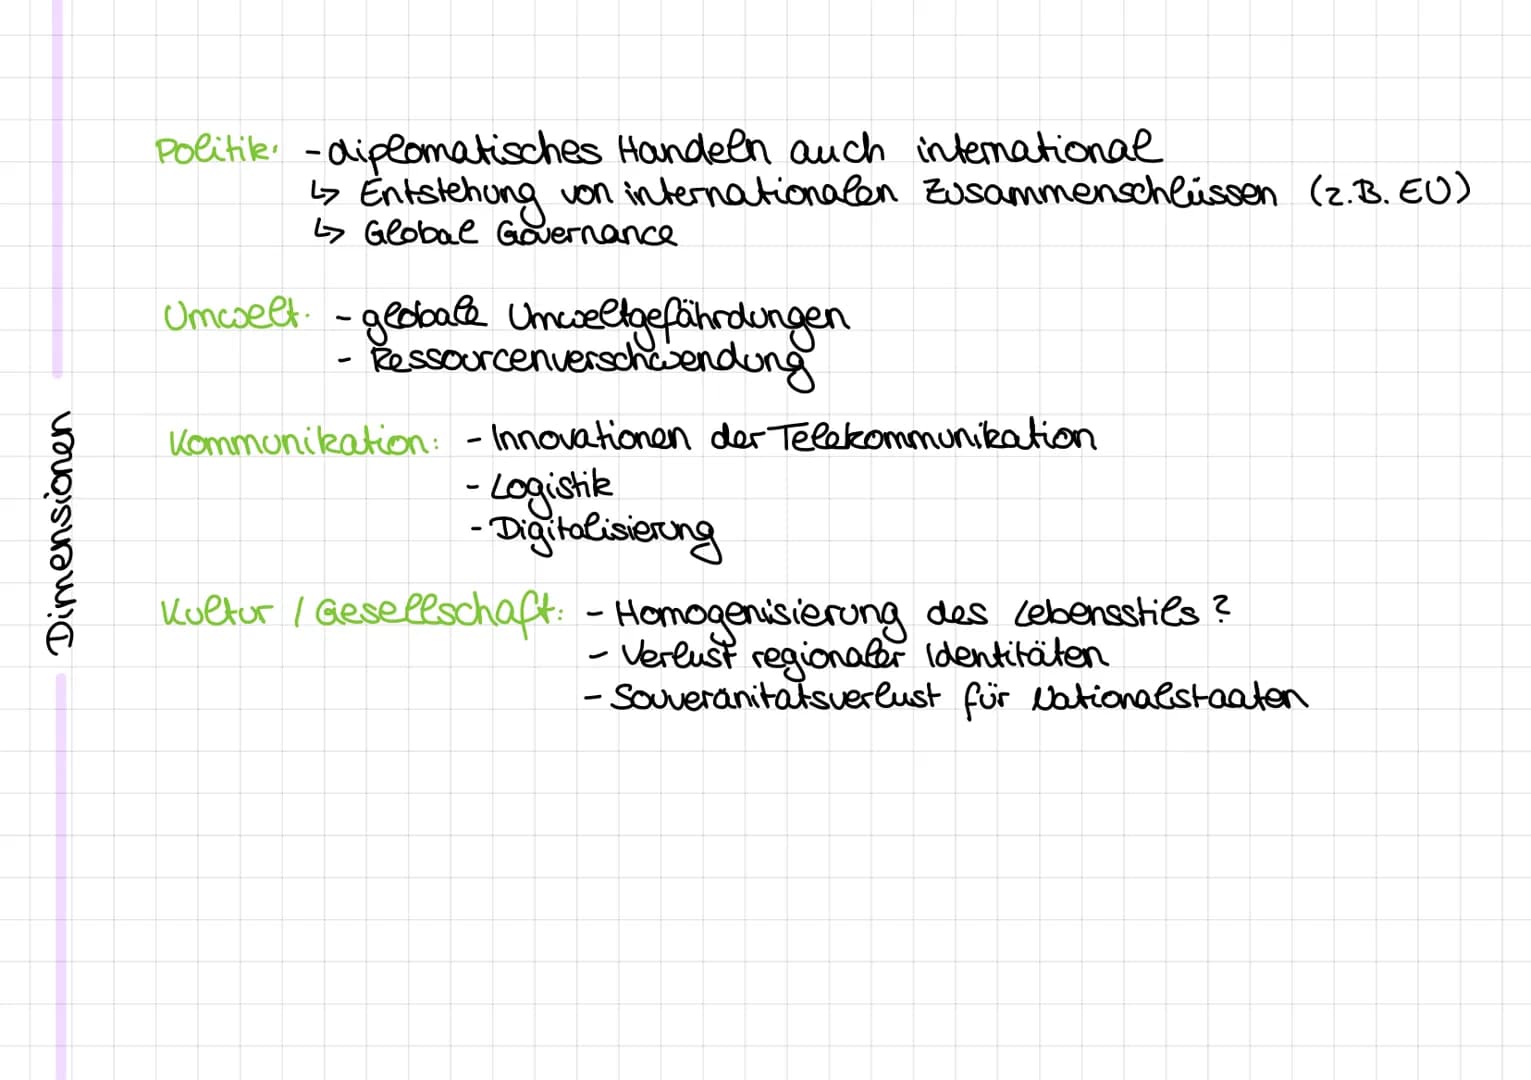 Politik: - diplomatisches Handeln auch international
↳ Entstehung von internationalen Zusammenschlüssen (z.B. EU)
↳ Global Governance
Umwelt: - globale Umweltgefährdungen
- Ressourcenverschwendung
Kommunikation: - Innovationen der Telekommunikation
- Logistik
- Digitalisierung
Kultur / Gesellschaft: - Homogenisierung des Lebensstils?
- Verlust regionaler Identitäten
- Souveränitätsverlust für Nationalstaaten
Dimensionen